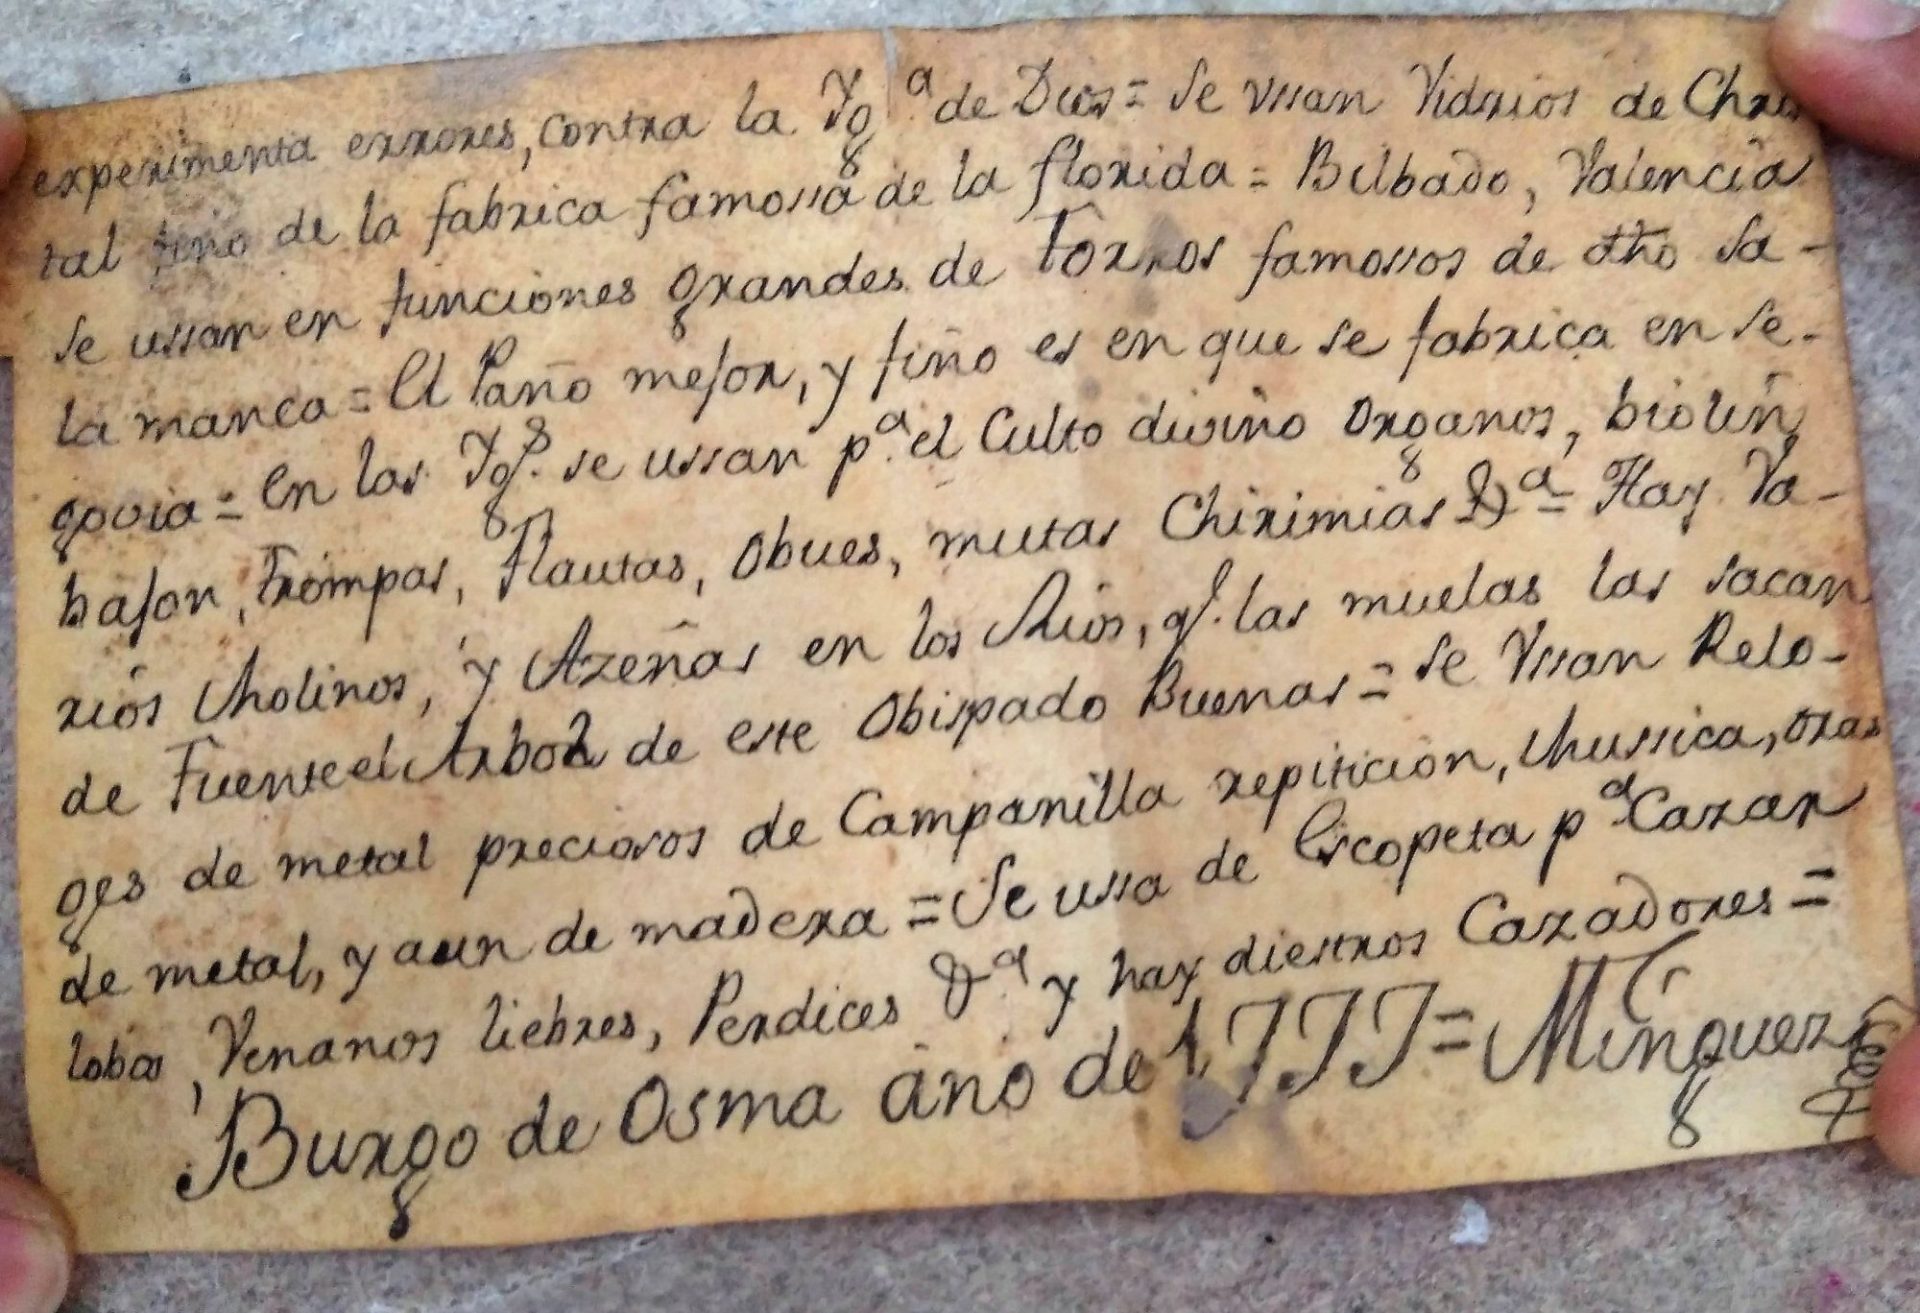 experimenta errores, contra la Yg.ª de Dios = Se vssan Vidrios de Chris
tal fino de la fabrica famossa de la florida = Bilbado, Valencia
se ussan en funciones grandes de Torros famossos de dho Sa-
la manca = El Paño mejor, y fino es en que se fabrica en Se-
govia = En las Ygs. se ussan p.ª el Culto divino Organos, biolin,
bajon, Trompas, Flautas, Obues, mutas Chirimias &ª = Hay Va-
rios Molinos, y Azeñas en los Rios, q.e las muelas las sacan
de Fuente el Arbol de este Obispado Buenas = Se Vssan Relo-
ges de metal preciosos de Campanilla repiticion, Mussica, oras
de metal, y aun de madera = Se ussa de Escopeta pª Cazar
lobos, Venanos liebres, Perdices &ª y hay diestros Cazadores =
Burgo de Osma año de 1777 = Minguez